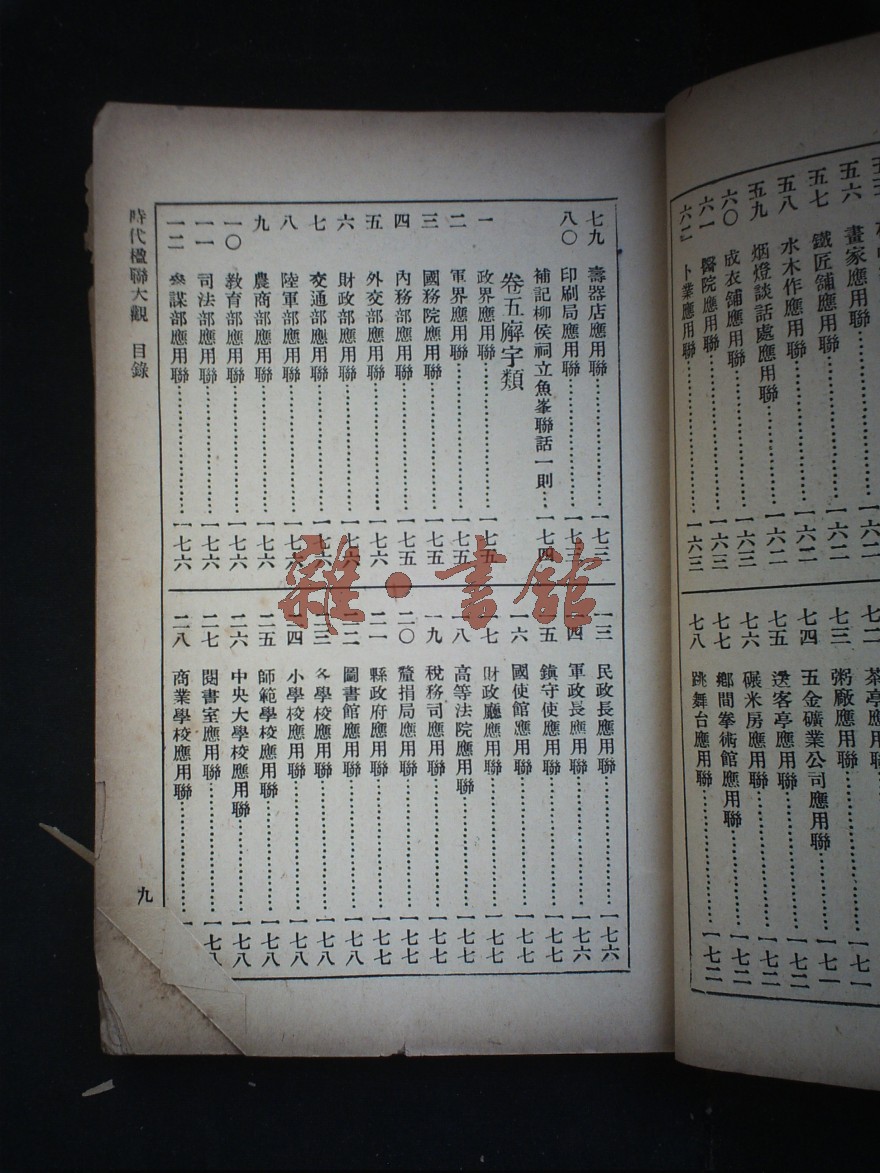 五六 畫家應用聯……一六二
五七 鐵匠舖應用聯……一六二
五八 水木作應用聯……一六二
五九 烟燈談話處應用聯……一六二
六〇 成衣舖應用聯……一六三
六一 醫院應用聯……一六三
六二 卜業應用聯……一六三
七二 茶亭應用聯……一七一
七三 粥廠應用聯……一七一
七四 五金礦業公司應用聯……一七一
七五 送客亭應用聯……一七二
七六 碾米房應用聯……一七二
七七 鄉間拳術館應用聯……一七二
七八 跳舞台應用聯……一七二
七九 壽器店應用聯……一七三
八〇 印刷局應用聯……一七三
補記柳侯祠立魚峯聯話一則…一七四
卷五廨字類
一 政界應用聯……一七五
二 軍界應用聯……一七五
三 國務院應用聯……一七五
四 內務部應用聯……一七五
五 外交部應用聯……一七六
六 財政部應用聯……一七六
七 交通部應用聯……一七六
八 陸軍部應用聯……一七六
九 農商部應用聯……一七六
一〇 教育部應用聯……一七六
一一 司法部應用聯……一七六
一二 參謀部應用聯……一七六
一三 民政長應用聯……一七六
一四 軍政長應用聯……一七六
一五 鎮守使應用聯……一七七
一六 國使館應用聯……一七七
一七 財政廳應用聯……一七七
一八 高等法院應用聯……一七七
一九 稅務司應用聯……一七七
二〇 釐捐局應用聯……一七七
二一 縣政府應用聯……一七七
二二 圖書館應用聯……一七八
二三 各學校應用聯……一七八
二四 小學校應用聯……一七八
二五 師範學校應用聯……一七八
二六 中央大學校應用聯……一七八
二七 閱書室應用聯……一七八
二八 商業學校應用聯……一
時代楹聯大觀 目錄 九
雜·書館